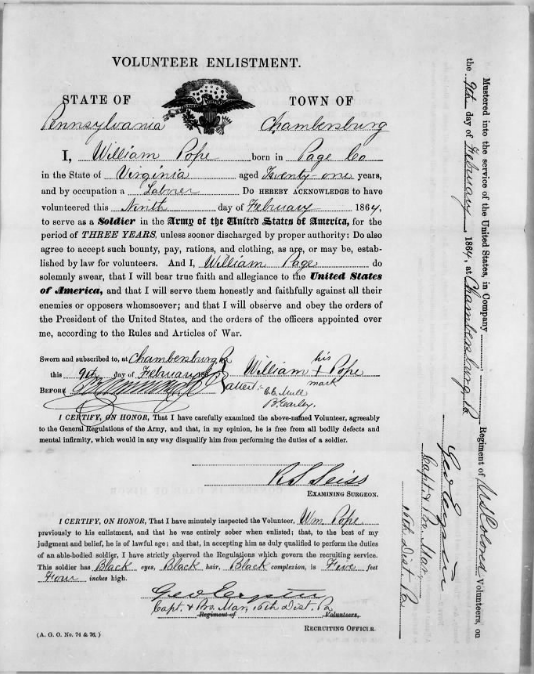 VOLUNTEER ENLISTMENT.
STATE OF TOWN OF
Pennsylvania Chambersburg
I, William Pope born in Page Co
in the State of Virginia aged Twenty-one years,
and by occupation a Laborer Do HEREBY ACKNOWLEDGE to have
volunteered this Ninth day of February 1864,
to serve as a Soldier in the Army of the United States of America, for the
period of THREE YEARS, unless sooner discharged by proper authority: Do also
agree to accept such bounty, pay, rations, and clothing, as are, or may be, estab-
lished by law for volunteers. And I, William Page do
solemnly swear, that I will bear true faith and allegiance to the United States
of America, and that I will serve them honestly and faithfully against all their
enemies or opposers whomsoever; and that I will observe and obey the orders of
the President of the United States, and the orders of the officers appointed over
me, according to the Rules and Articles of War.
Sworn and subscribed to, at Chambersburg Pa
this 9th day of February William his + mark Pope
BEFORE attest
I CERTIFY, ON HONOR, That I have carefully examined the above-named Volunteer, agreeably
to the General Regulations of the Army, and that, in my opinion, he is free from all bodily defects and
mental infirmity, which would in any way disqualify him from performing the duties of a soldier.
R S Seiss
EXAMINING SURGEON.
I CERTIFY, ON HONOR, That I have minutely inspected the Volunteer, Wm. Pope
previously to his enlistment, and that he was entirely sober when enlisted; that, to the best of my
judgment and belief, he is of lawful age; and that, in accepting him as duly qualified to perform the duties
of an able-bodied soldier, I have strictly observed the Regulations which govern the recruiting service.
This soldier has Black eyes, Black hair, Black complexion, is Five feet
Four inches high.
Geo Eyster
Capt. & Pro. Mar. 16th Dist. Pa
Regiment of Volunteers,
RECRUITING OFFICER.
(A. G. O. No. 74 & 76.)
Mustered into the service of the United States, in Company Regiment of U S Colored Volunteers, on
the 9th day of February 1864, at Chambersburg Pa
Geo Eyster
Capt & Pro. Mar.
16th Dist. Pa